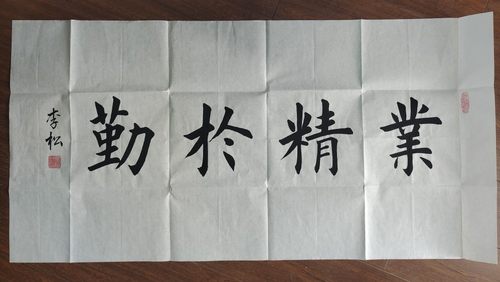 業精於勤
李松